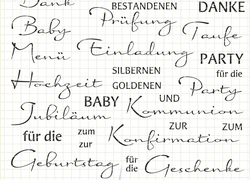 Dank BESTANDENEN DANKE
Baby Prüfung Taufe
Menü Einladung PARTY
Hochzeit SILBERNEN GOLDENEN für die Party
BABY UND
Jubiläum Kommunion
für die zum zur Konfirmation ZUR ZUM
Geburtstag für die Geschenke